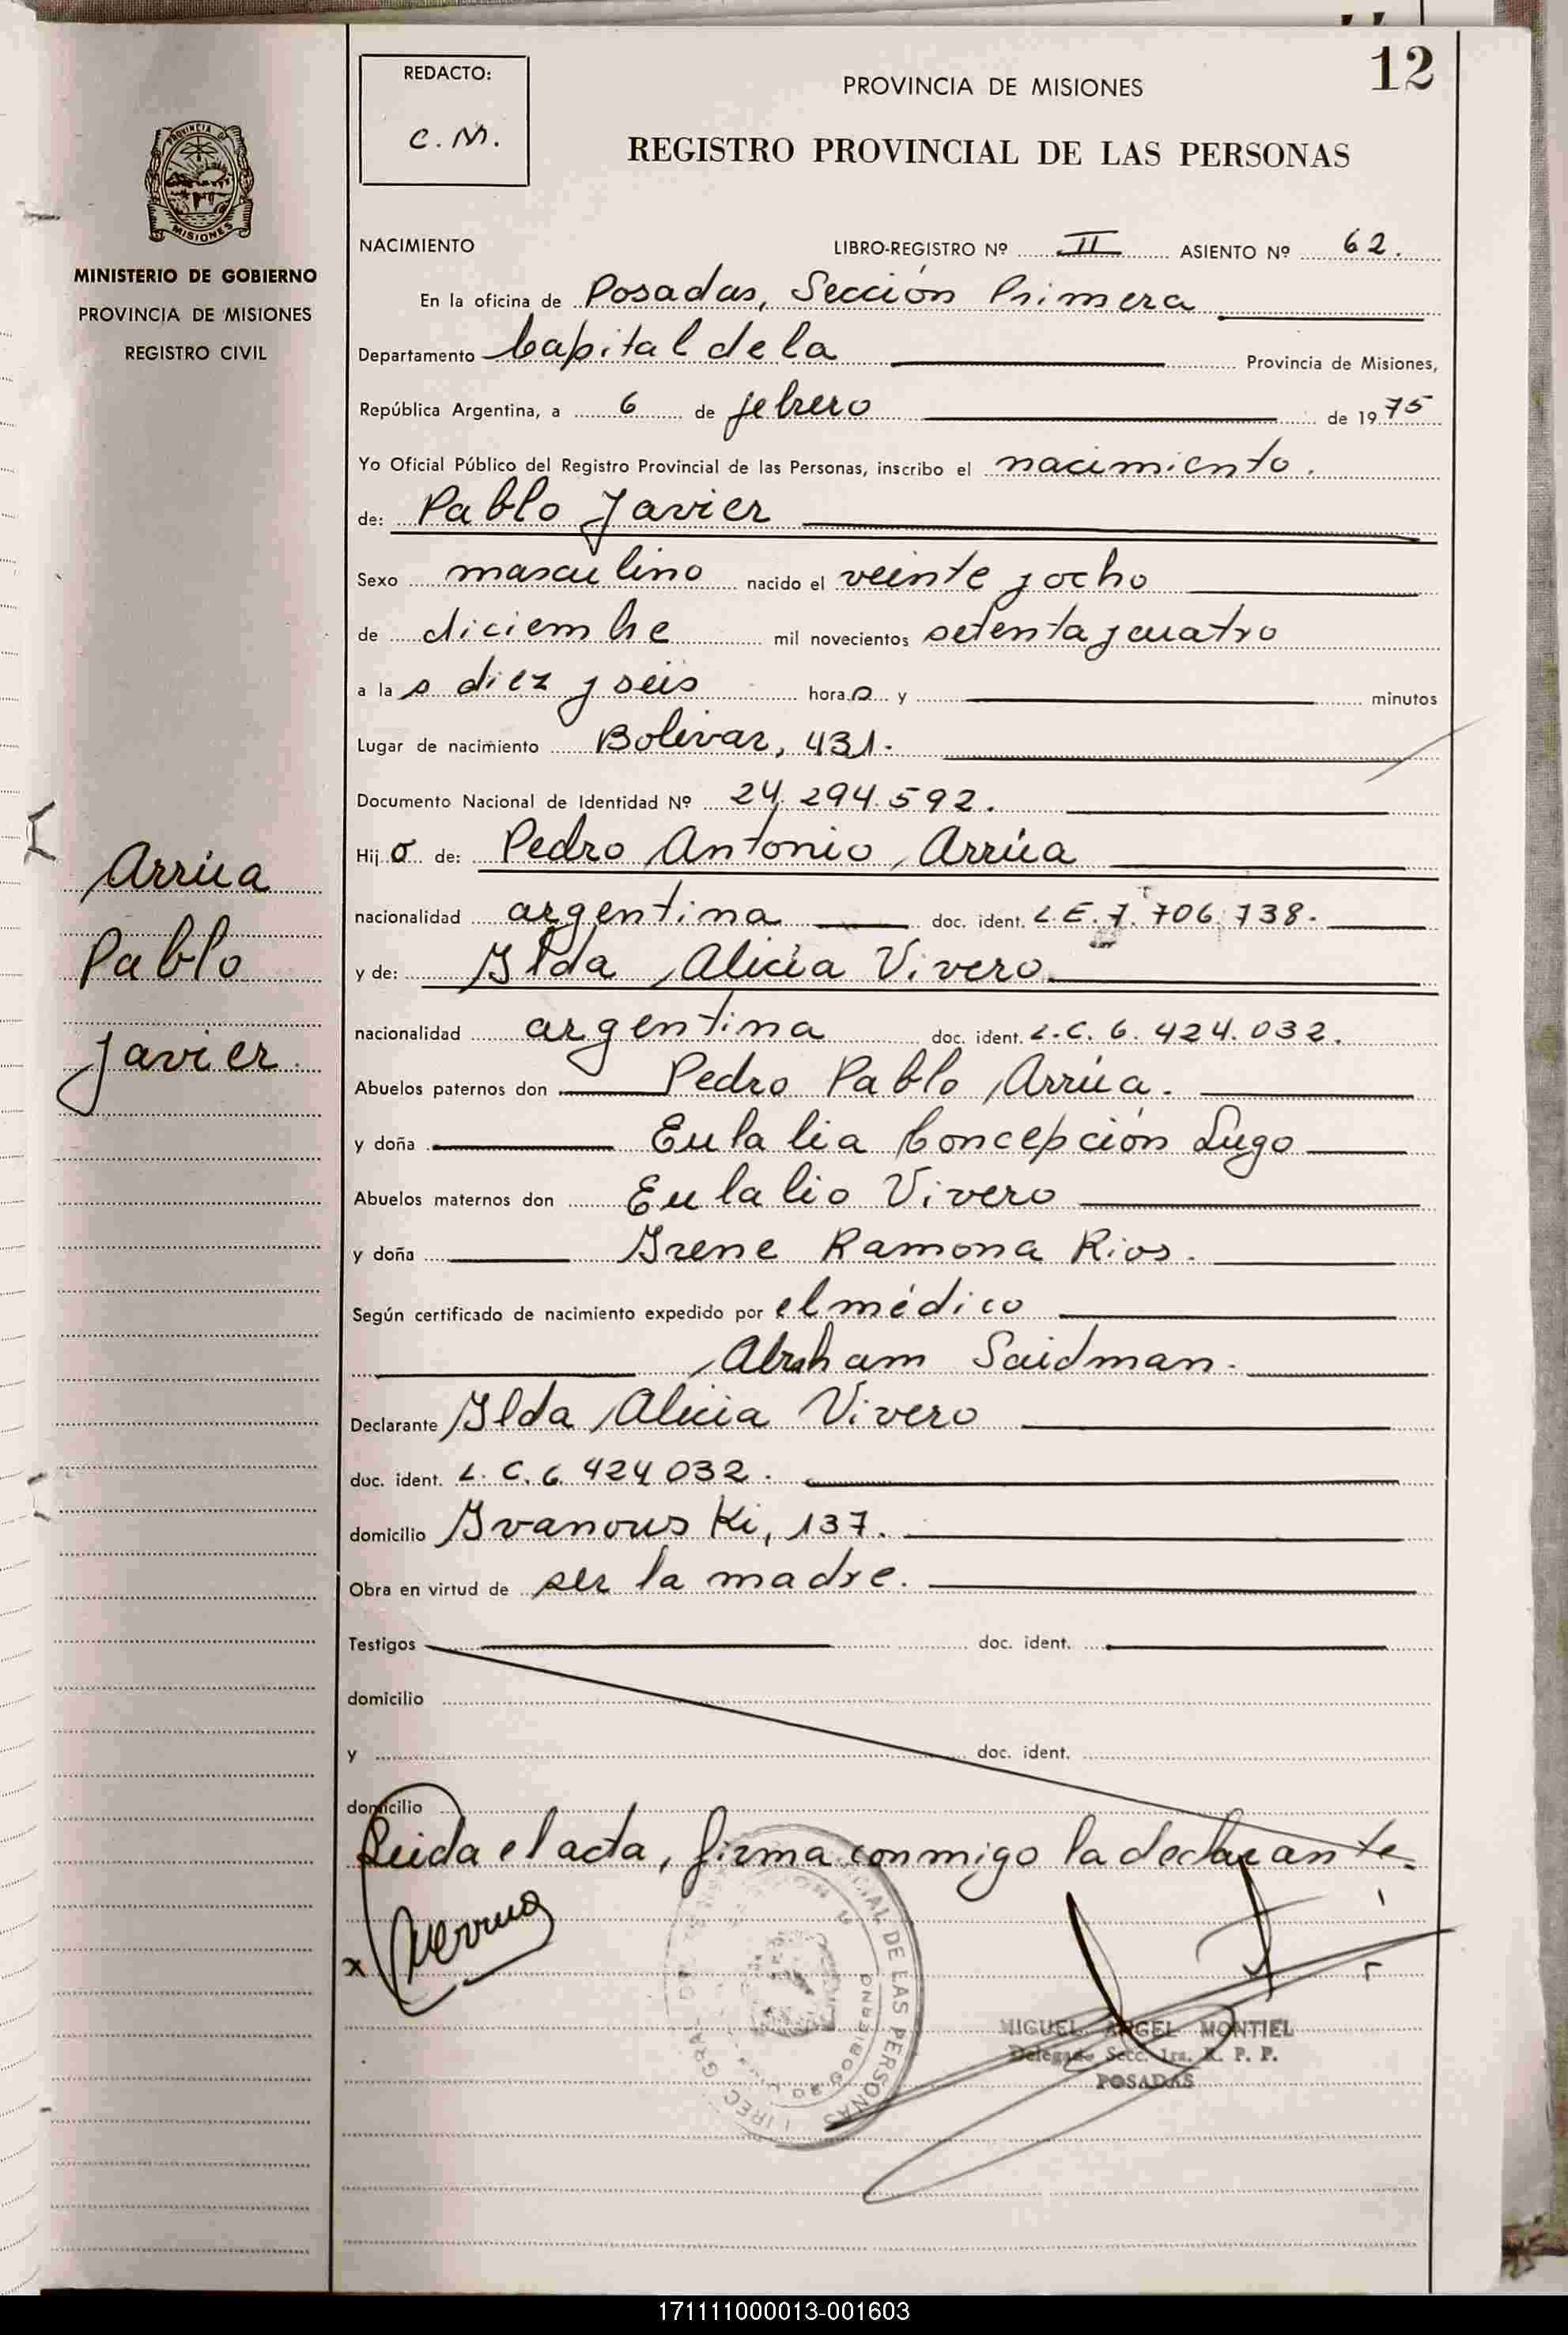 12
REDACTO:
C.M.
PROVINCIA DE MISIONES
REGISTRO PROVINCIAL DE LAS PERSONAS
PROVINCIA DE
MISIONES
MINISTERIO DE GOBIERNO
PROVINCIA DE MISIONES
REGISTRO CIVIL
NACIMIENTO LIBRO-REGISTRO Nº II ASIENTO Nº 62.
En la oficina de Posadas, Sección Primera
Departamento Capital de la Provincia de Misiones,
República Argentina, a 6 de febrero de 1975
Yo Oficial Público del Registro Provincial de las Personas, inscribo el nacimiento.
de: Pablo Javier
Sexo masculino nacido el veinte y ocho
de diciembre mil novecientos setenta y cuatro
a las diez y seis horas y minutos
Lugar de nacimiento Bolivar, 431.
Documento Nacional de Identidad Nº 24.294.592.
Hijo de: Pedro Antonio Arrúa
nacionalidad argentina doc. ident. L.E. 7.706.738.
y de: Ilda Alicia Vivero
nacionalidad argentina doc. ident. L.C. 6.424.032.
Abuelos paternos don Pedro Pablo Arrúa.
y doña Eulalia Concepción Lugo
Abuelos maternos don Eulalio Vivero
y doña Irene Ramona Rios.
Según certificado de nacimiento expedido por el médico
Abraham Saidman.
Declarante Ilda Alicia Vivero
doc. ident. L.C. 6.424032.
domicilio Ivanouski, 137.
Obra en virtud de ser la madre.
Testigos doc. ident.
domicilio
y doc. ident.
domicilio
Leida el acta, firma conmigo la declarante.
x
MIGUEL ANGEL MONTIEL
Delegado Secc. 1ra. R. P. P.
POSADAS
DE LAS PERSONAS
Arrúa
Pablo
Javier.
171111000013-001603